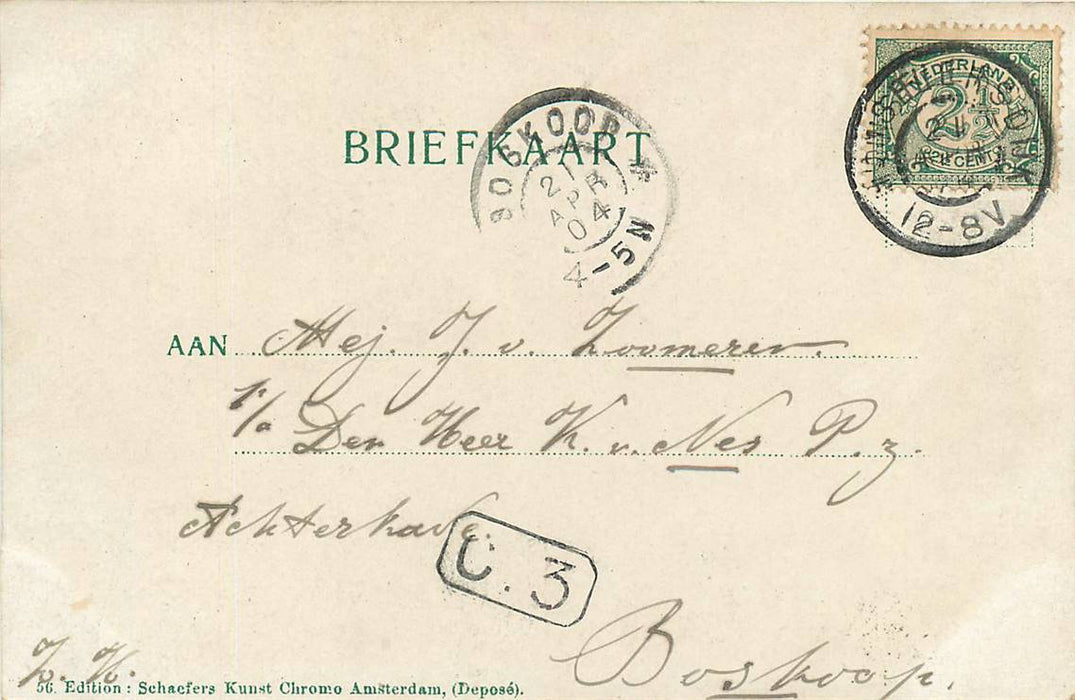 NEDERLAND
2½
2½ CENT
12-8V
BOSKOOP
21
APR
04
4-5N
BRIEFKAART
AAN Mej. J. v. Zoomeren.
p/a Den Heer K. v. Nes P.z.
Achterkade.
C.3
Boskoop.
Z. H.
56. Edition: Schaefers Kunst Chromo Amsterdam, (Deposé).